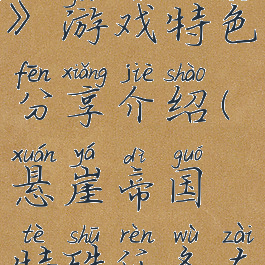 》游戏特色
fēn xiǎng jiè shào
分享介绍(
xuán yá dì guó
悬崖帝国
tè shū rèn wù zài